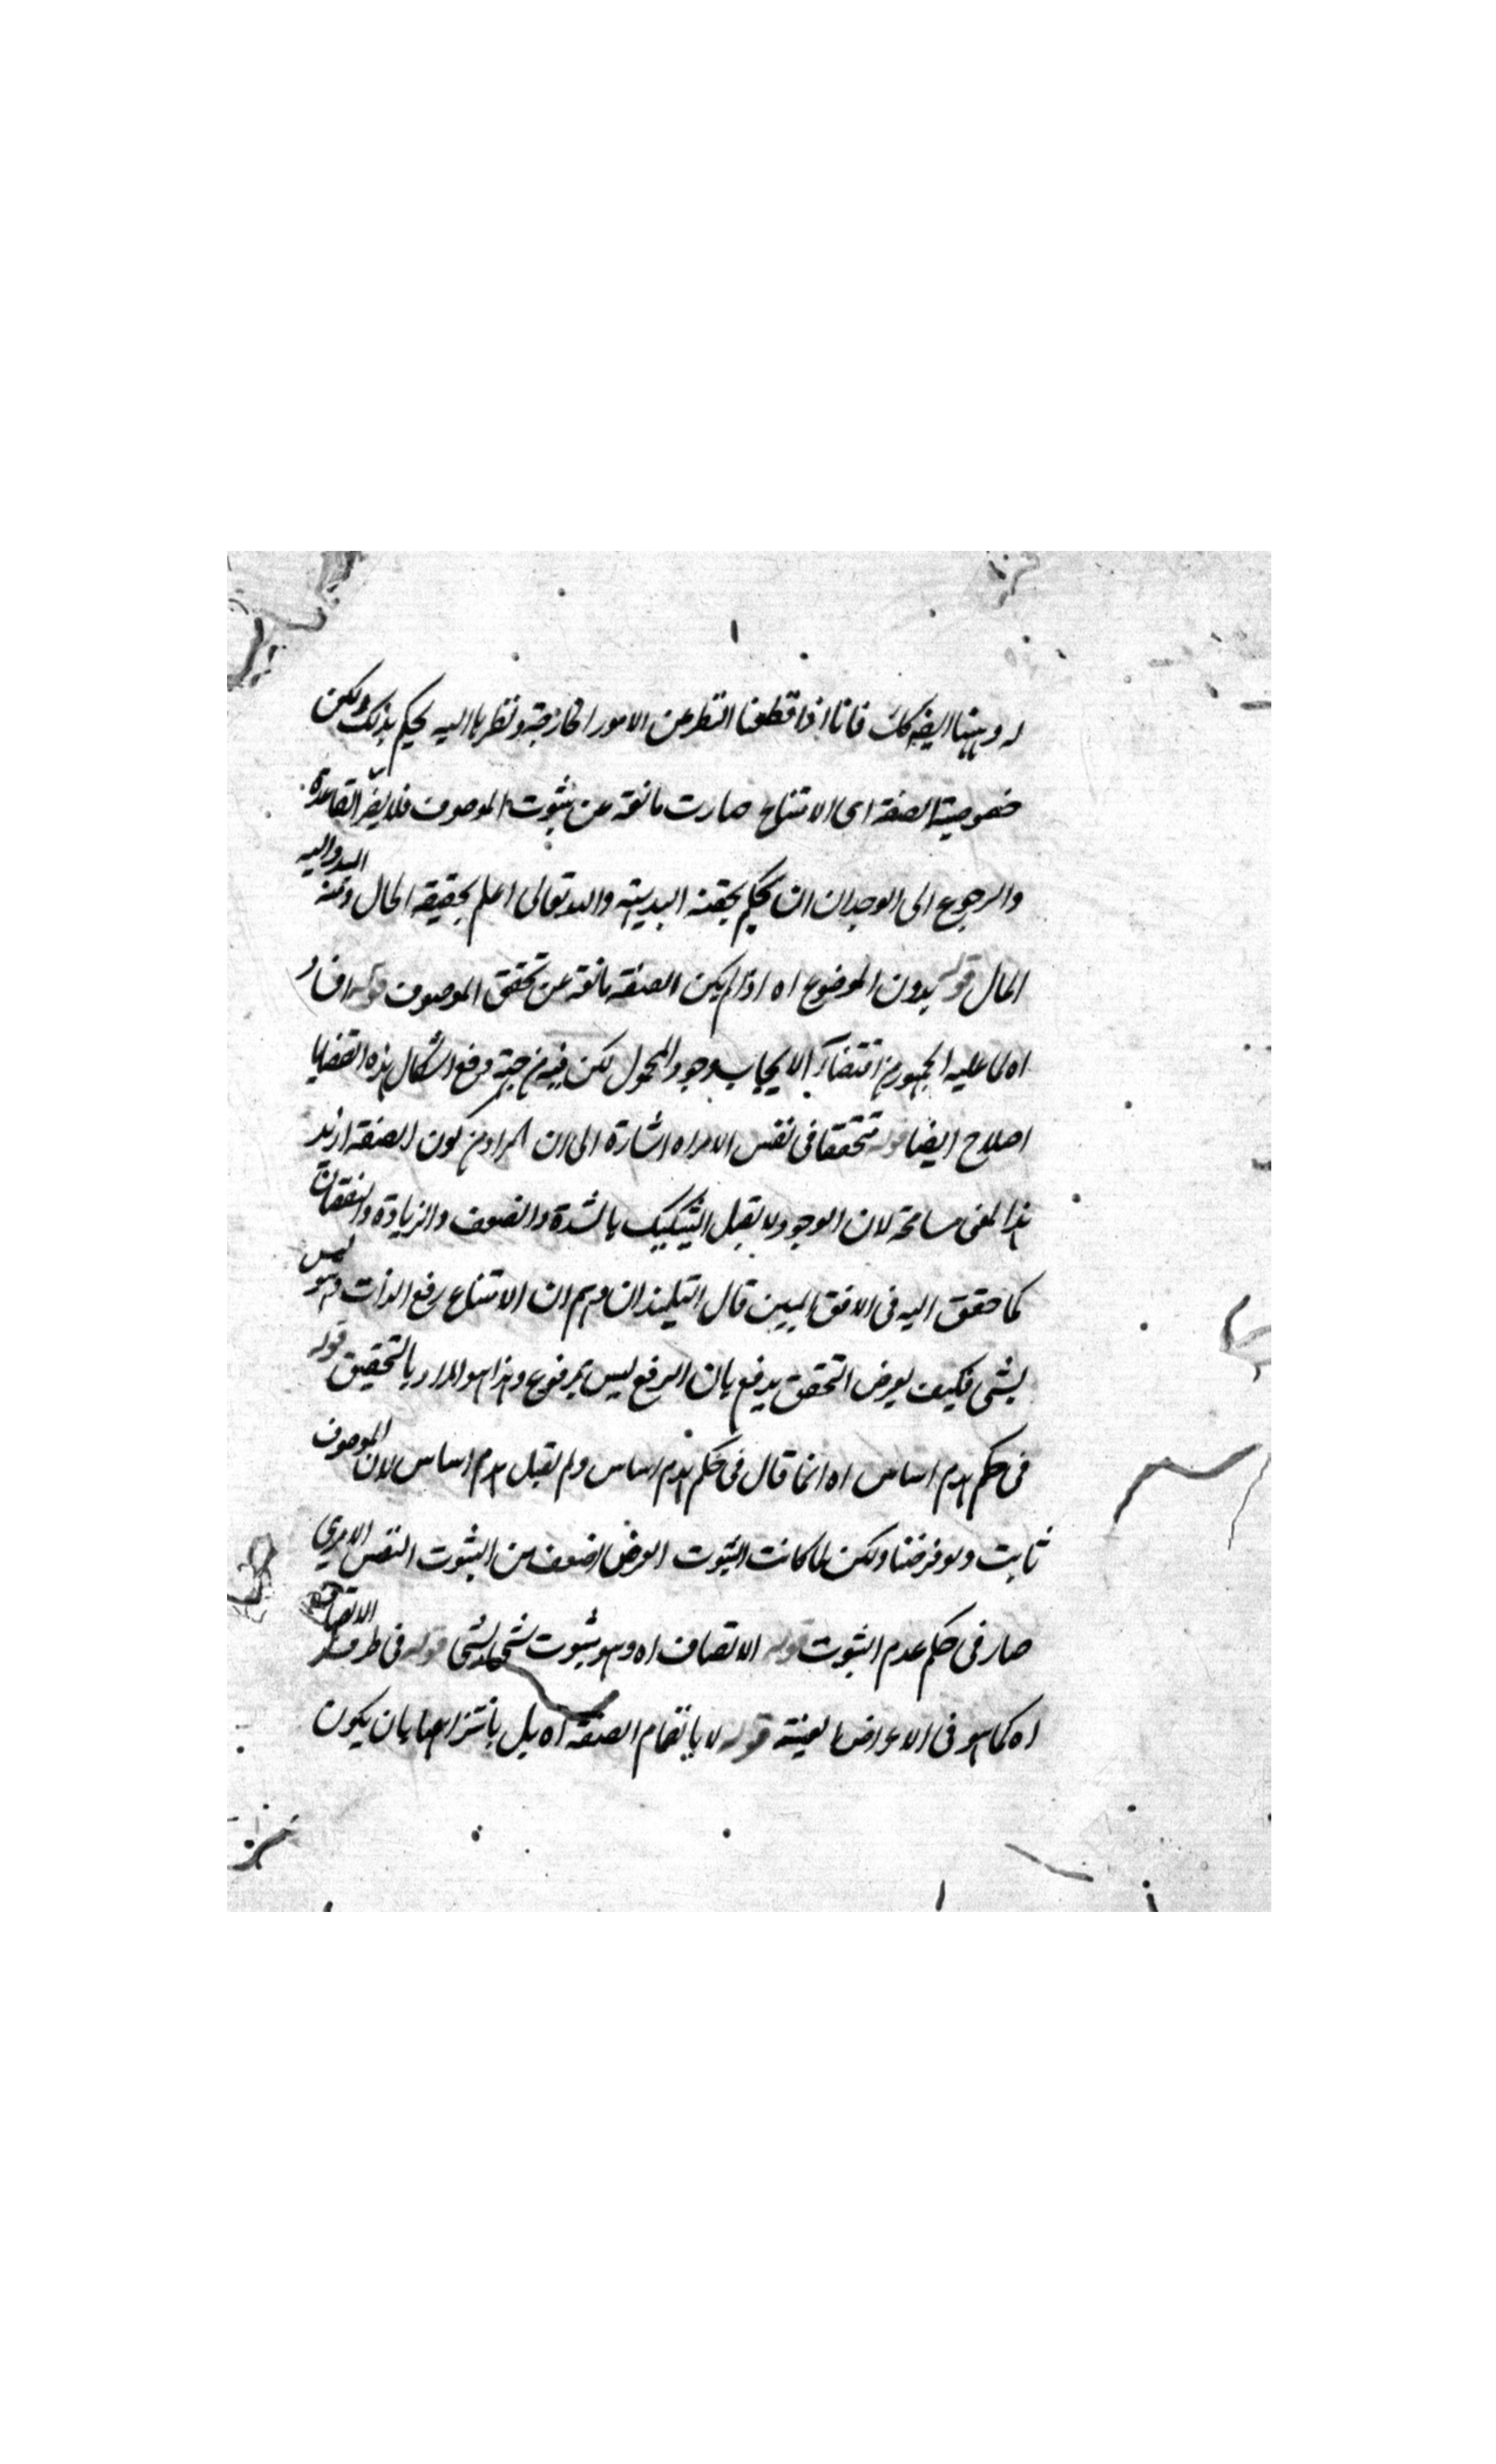 له وههنا ايضه كك فانا اذا قطعنا النظر عن الامور الخارجة ونظرنا اليه يحكم بذلك ولكن
خصوصية الصفة اى الامتناع صارت مانعة عن ثبوت الموصوف فلا يضر القاعدة
والرجوع الى الوجدان ان يحكم بحقنه البديهة والله تعالى اعلم بحقيقة الحال ومنه المبدأ واليه
المال قوله بدون الموضوع اه اذا لم يكن الصفة مانعة عن تحقق الموصوف قوله افاد
اه لما عليه الجمهور من اقتضاء الايجاب وجود المحمول لكن فيه من جهة دفع اشكال هذه القضايا
اصلاح ايضا قوله تحققا فى نفس الامر اه اشارة الى ان المراد من كون الصفة ازيد
هذا المعنى مسامحة لان الوجود لا يقبل التشكيك بالشدة والضعف والزيادة والنقصان
كما حقق اليه فى الافق المبين قال التلميذ ان وهم ان الامتناع رفع الذات وهو ليس
بشى فكيف يعرض التحقق يدفع بان الرفع ليس بمرفوع وهذا هو المراد بالتحقيق قوله
فى حكم هدم اساس اه انما قال فى حكم هدم اساس ولم يقل هدم اساس لان الموصوف
ثابت ولو فرضنا ولكن لما كانت الثبوت الفرض اضعف من الثبوت النفس الامرى
صار فى حكم عدم الثبوت قوله الاتصاف اه وهو ثبوت شى لشى قوله فى ظرف الاتصاف
اه كما هو فى الاعراض العينية قوله لا بانضمام الصفة اه بل بانتزاعها بان يكون